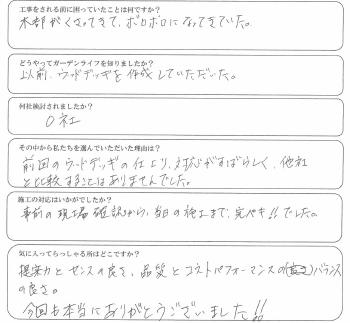 工事をされる前に困っていたことは何ですか？
木部がくさってきて、ボロボロになってきていた。
どうやってガーデンライフを知りましたか？
以前、ウッドデッキを作成していただいた。
何社検討されましたか？
0社
その中から私たちを選んでいただいた理由は？
前回のウッドデッキの仕上り、対応がすばらしく、他社
と比較することはありませんでした。
施工の対応はいかがでしたか？
事前の現場確認から、当日の施工まで、完ペキ!!でした。
気に入ってらっしゃる所はどこですか？
提案力とセンスの良さ、品質とコストパフォーマンスの(良さ)バランス
の良さ。
今回も本当にありがとうございました!!